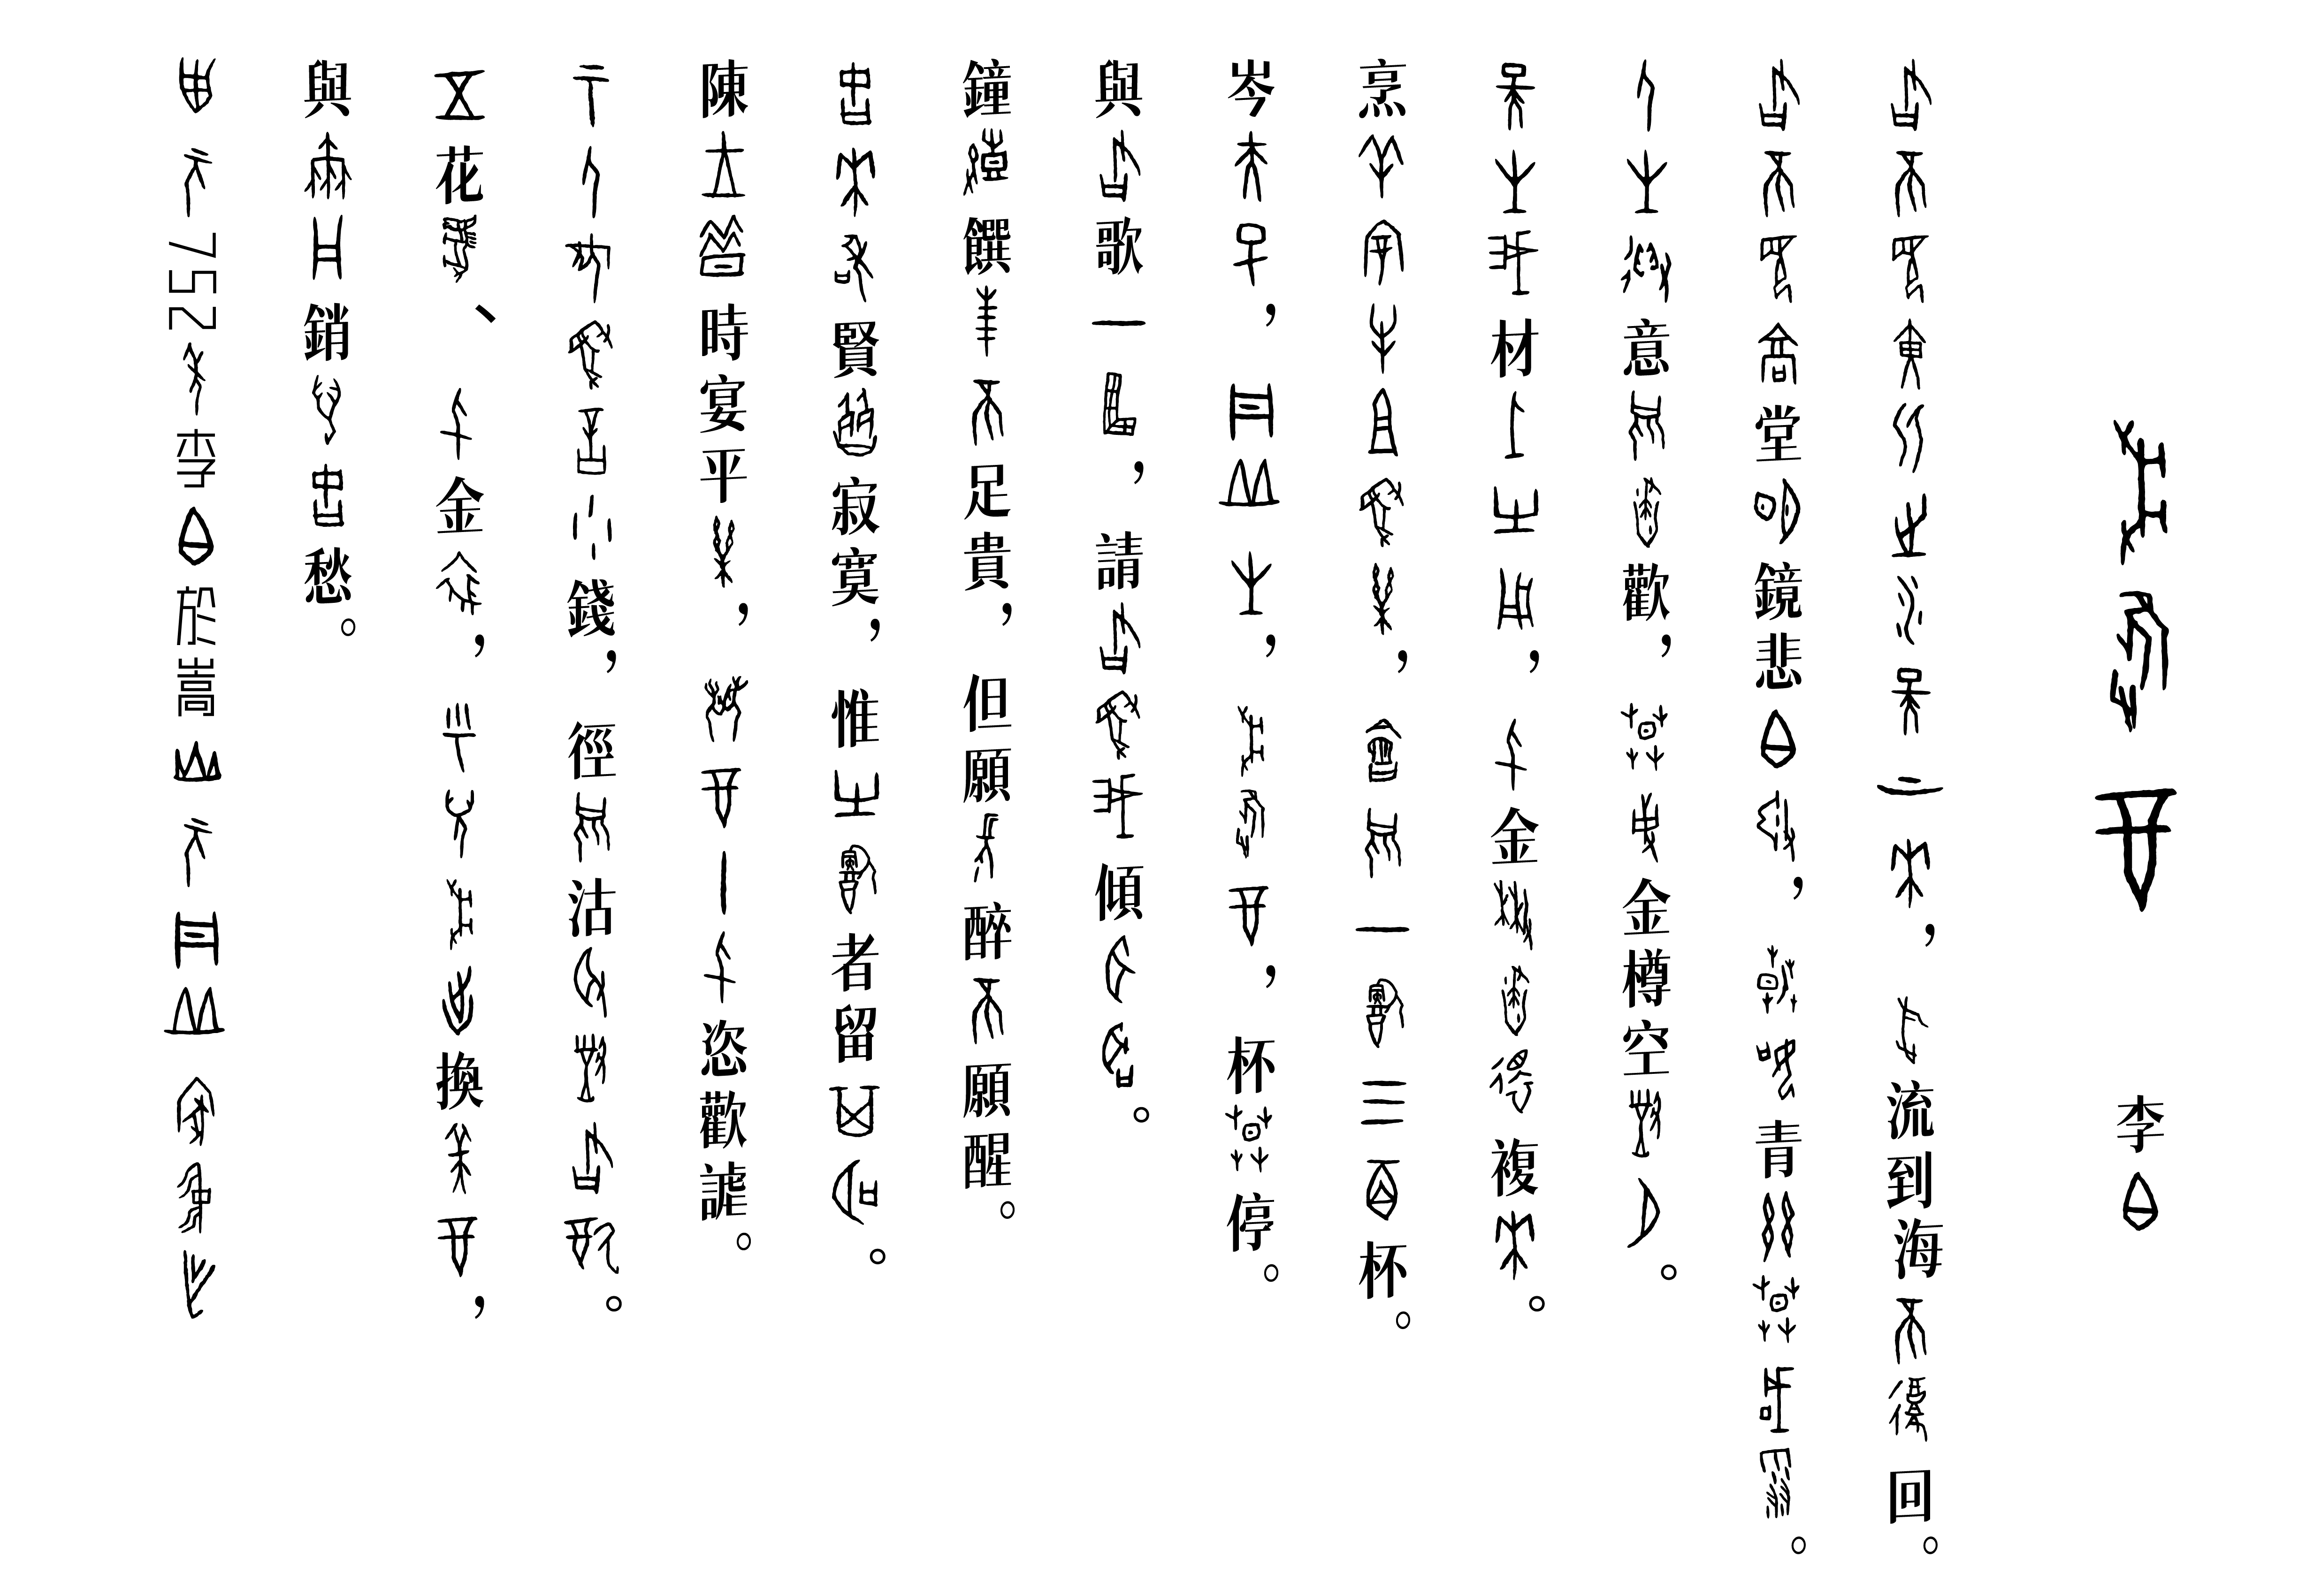 將進酒 李白
君不見黃河之水天上來,奔流到海不復回。
君不見高堂明鏡悲白髮,朝如青絲暮成雪。
人生得意須盡歡,莫使金樽空對月。
天生我材必有用,千金散盡還複來。
烹羊宰牛且為樂,會須一飲三百杯。
岑夫子,丹丘生,將進酒,杯莫停。
與君歌一曲,請君為我傾耳聽。
鐘鼓饌玉不足貴,但願長醉不願醒。
古來聖賢皆寂寞,惟有飲者留其名。
陳王昔時宴平樂,斗酒十千恣歡謔。
主人何為言少錢,徑須沽取對君酌。
五花馬、千金裘,呼兒將出換美酒,
與爾同銷萬古愁。
西元752年李白於嵩山元丹丘家